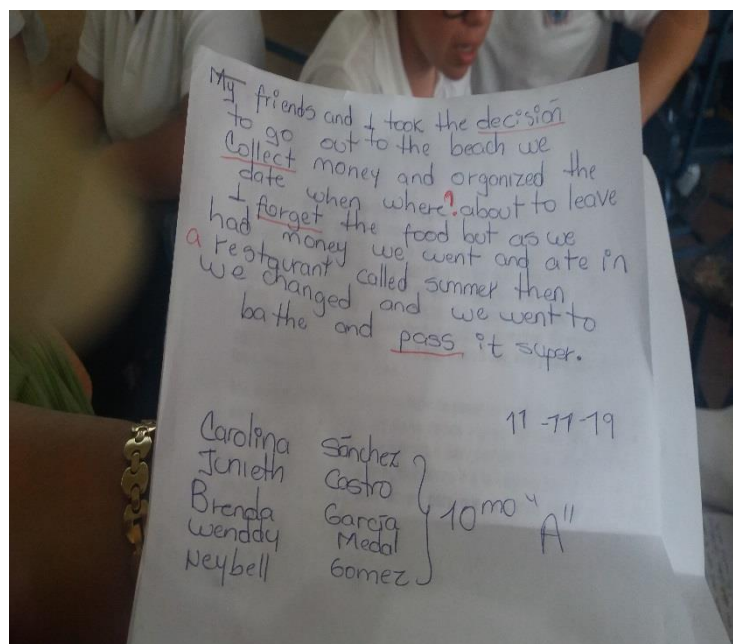 My friends and I took the decisión
to go out to the beach we
Collect money and organized the
date when where?. about to leave
I forget the food but as we
had money we went and ate in
a restaurant called summer then
we changed and we went to
bathe and pass it super.
11-11-19
Carolina Sánchez
Junieth Castro
Brenda García
Wenddy Medal
Neybell Gomez
10mo "A"